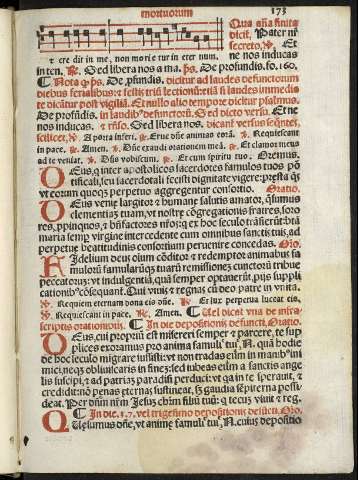 mortuorum
173
Qua aña finita
dicit. Pater nr̄
secreto. ℣. Et
ne nos inducas
et cre dit in me, non mori e tur in eter num.
in ten. ℟. Sed libera nos a ma. ps. De profundis. fo. 160.
Nota q̄ ps. De profundis. dicitur ad laudes defunctorum
diebus ferialibus: & festis triū lectionū: etiā si laudes immedia
te dicātur post vigiliā. Et nullo alio tempore dicitur psalmus.
De profūdis. in laudibꝰ defunctorū. Sed dicto versu. Et ne
nos inducas. & rn̄so. Sed libera nos. dicant versus seqn̄tes,
scilicet, ℣. A porta inferi. ℟. Erue dn̄e animas eorū. ℣. Requiescant
in pace. ℟. Amen. ℣. Dn̄e exaudi orationem meā. ℟. Et clamor meus
ad te veniat. ℣. Dn̄s vobiscum. ℟. Et cum spiritu tuo. Oremus.
DEus, q inter apostolicos sacerdotes famulos tuos pō
tificali, seu sacerdotali fecisti dignitate vigere: presta qs̄
vt eorum quoqz perpetuo aggregentur consortio. Oratio.
DEus venie largitor & humane salutis amator, qs̄umus
clementiam tuam, vt nostre cōgregationis fratres, soro
res, ppinquos, & bn̄factores nr̄os: q ex hoc seculo trāsierūt: btā
maria semp virgine intercedente cum omnibus sanctis tuis, ad
perpetue beatitudinis consortium peruenire concedas. Oro.
FIdelium deus oium cōditor & redemptor animabus fa
mulorū famularūqz tuarū remissionem cunctorū tribue
peccatorum: vt indulgentiā, quā semper optauerūt, pijs suppli
cationibꝰ cōsequant̄. Qui viuis & regnas cū deo patre in vnita.
℣. Requiem eternam dona eis dn̄e. ℟. Et lux perpetua luceat eis.
℣. Requiescant in pace. ℟. Amen. Uel dicat̄ vna de infra
scriptis orationibus. In die depositionis defuncti. Oratio.
DEus, cui propriū est misereri semper & parcere, te sup
plices exoramus pro anima famuli tui, N. quā hodie
de hoc seculo migrare iussisti: vt non tradas eūm in manibꝰ ini
mici, neqz obliuiscaris in finez: sed iubeas eūm a sanctis ange
lis suscipi, & ad patriaz paradisi perduci: vt qa in te sperauit, &
credidit: nō penas eternas sustineat, sz gaudia sēpiterna possi
deat. Per dn̄m nr̄m Jesuz chr̄m filiū tuū: q tecuz viuit & reg.
In die .3.7. vel trigesimo depositionis defuncti. Oro.
QUesumus dn̄e, vt anime famuli tui, N. cuius depositio